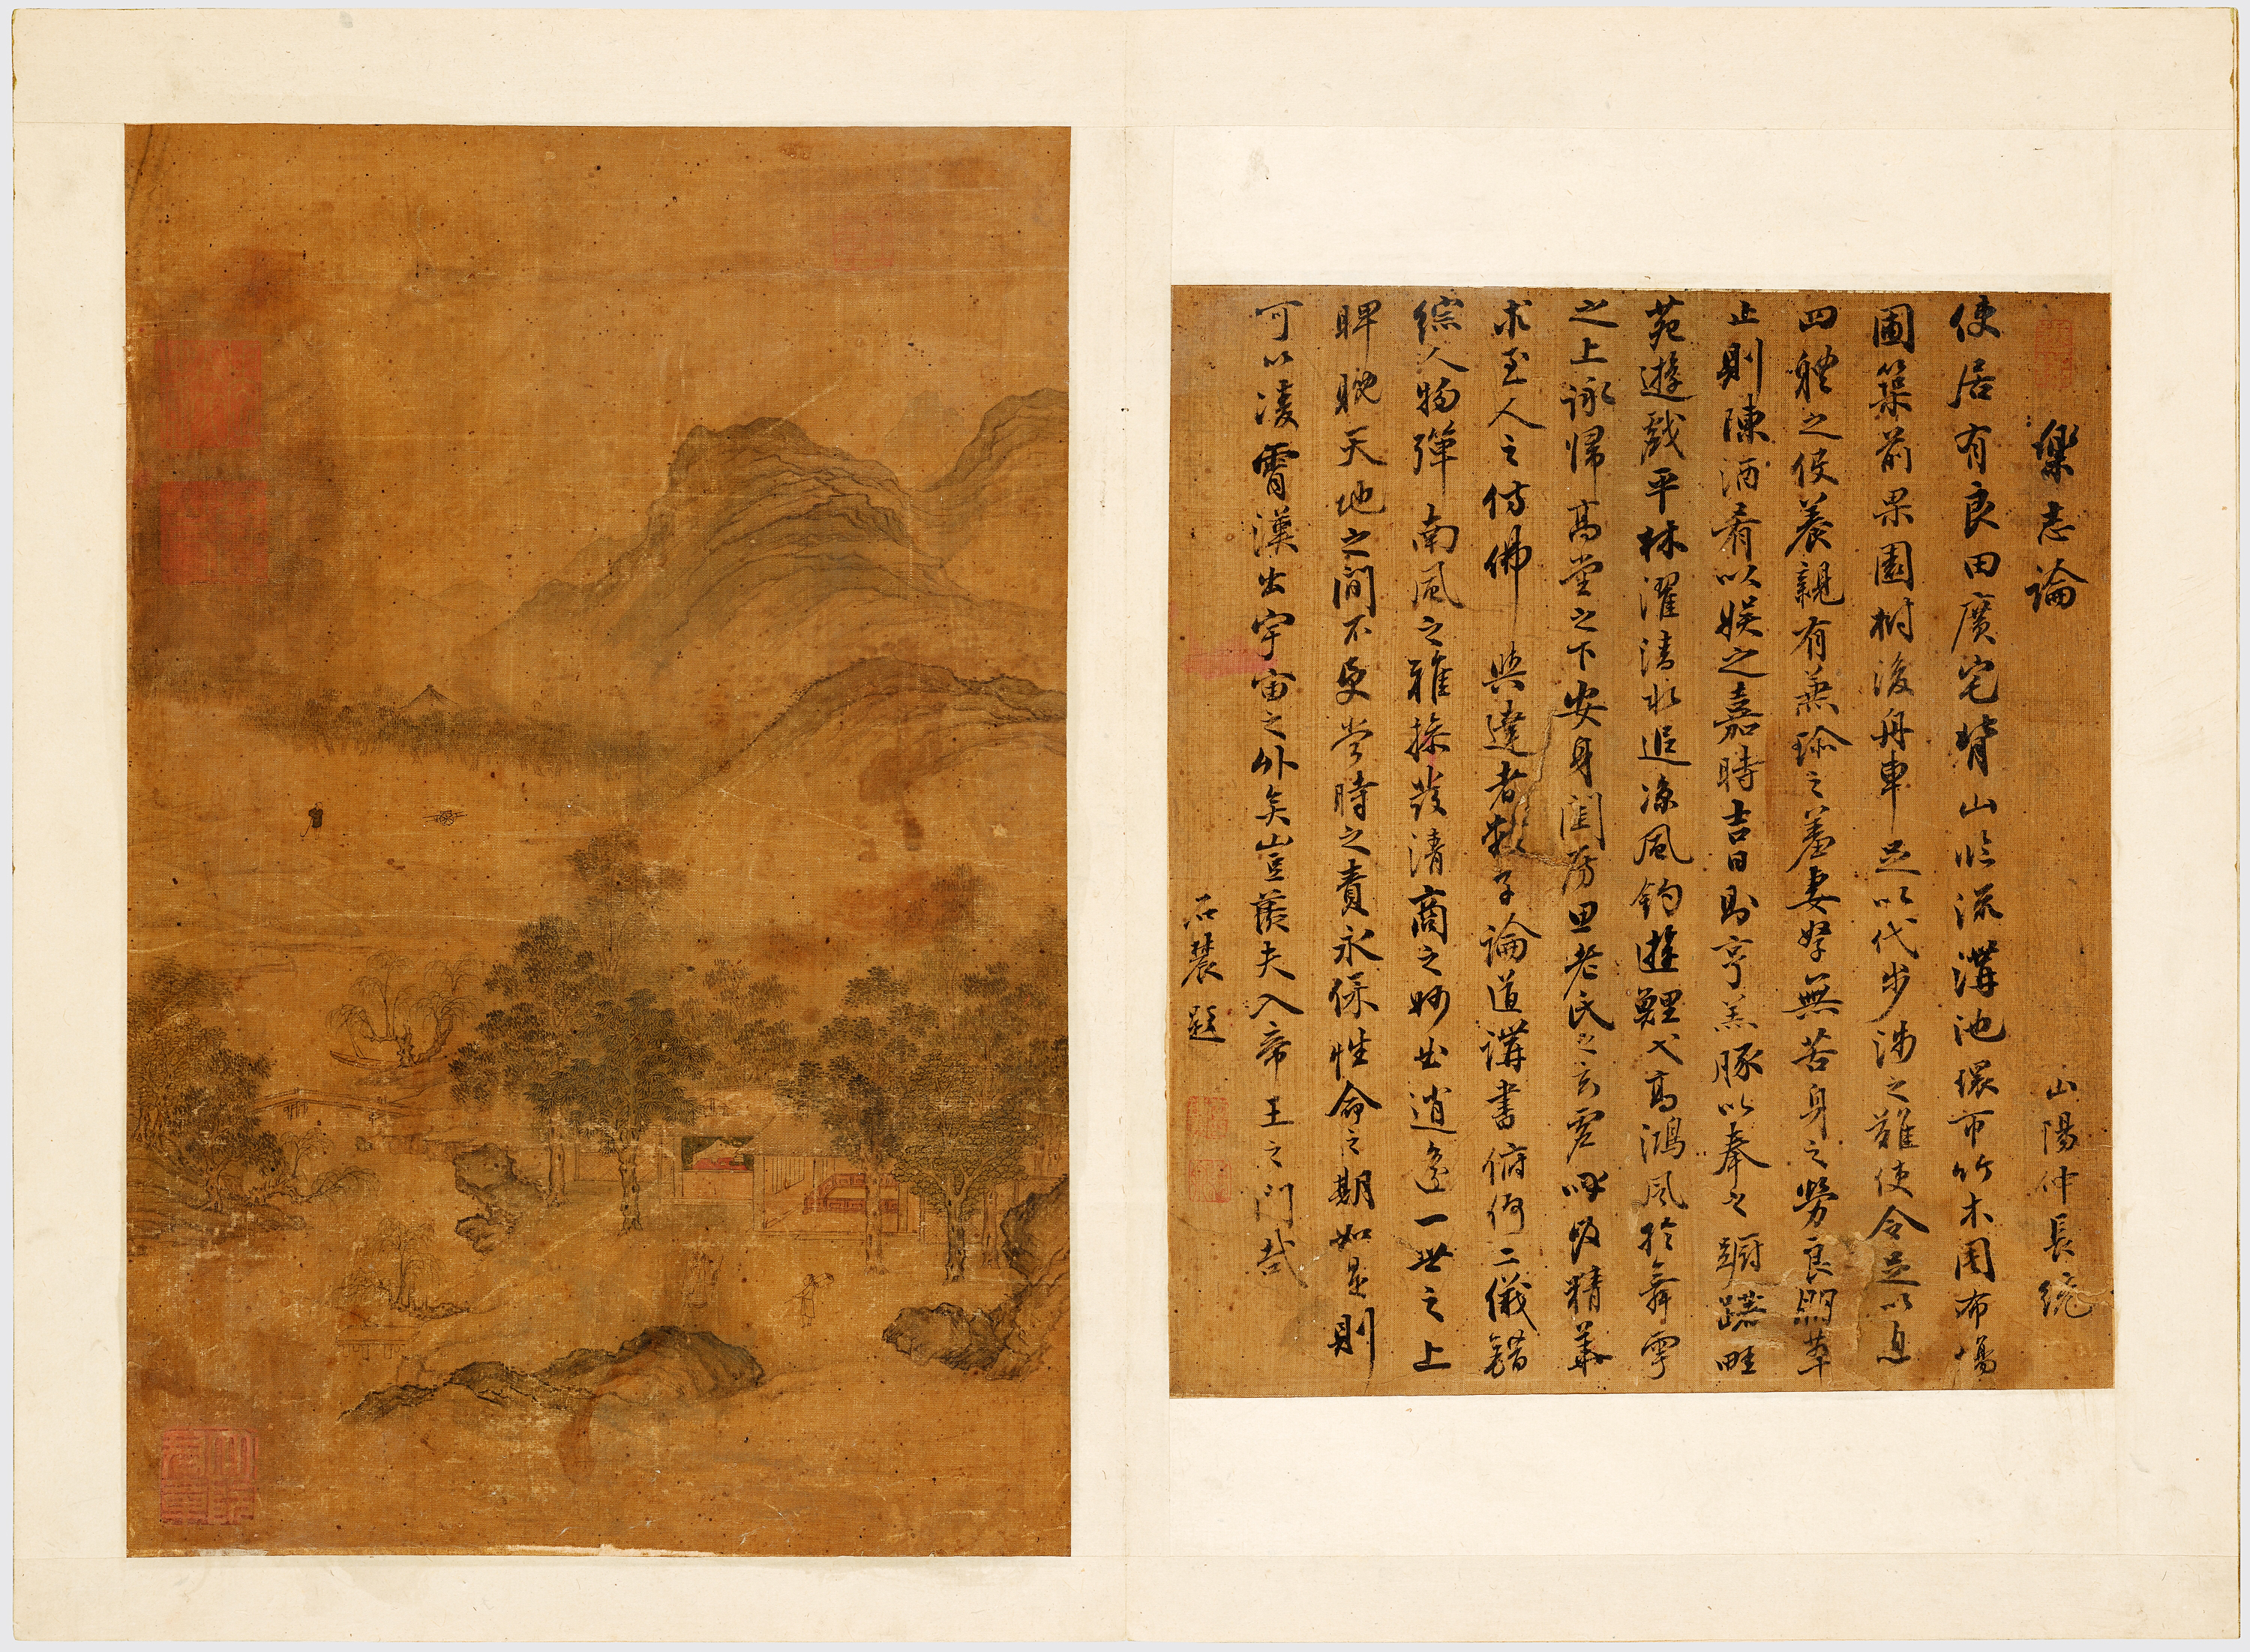 樂志論 山陽仲長統
使居有良田廣宅背山臨流溝池環帀竹木周布場
圃築前果園樹後舟車足以代步涉之難使令足以息
四體之役養親有兼珍之羞妻孥無苦身之勞良朋萃
止則陳酒肴以娛之嘉時吉日則亨羔豚以奉之躕躇畦
苑遊戲平林濯清水追凉風釣遊鯉弋高鴻風於舞雩
之上詠歸高堂之下安身閨房思老氏之玄虛呼吸精華
求至人之仿佛與達者數子論道講書俯仰二儀錯
綜人物彈南風之雅操發清商之妙曲逍遙一世之上
睥睨天地之間不受當時之責永保性命之期如是則
可以凌霄漢出宇宙之外矣豈羨夫入帝王之門哉
石農題